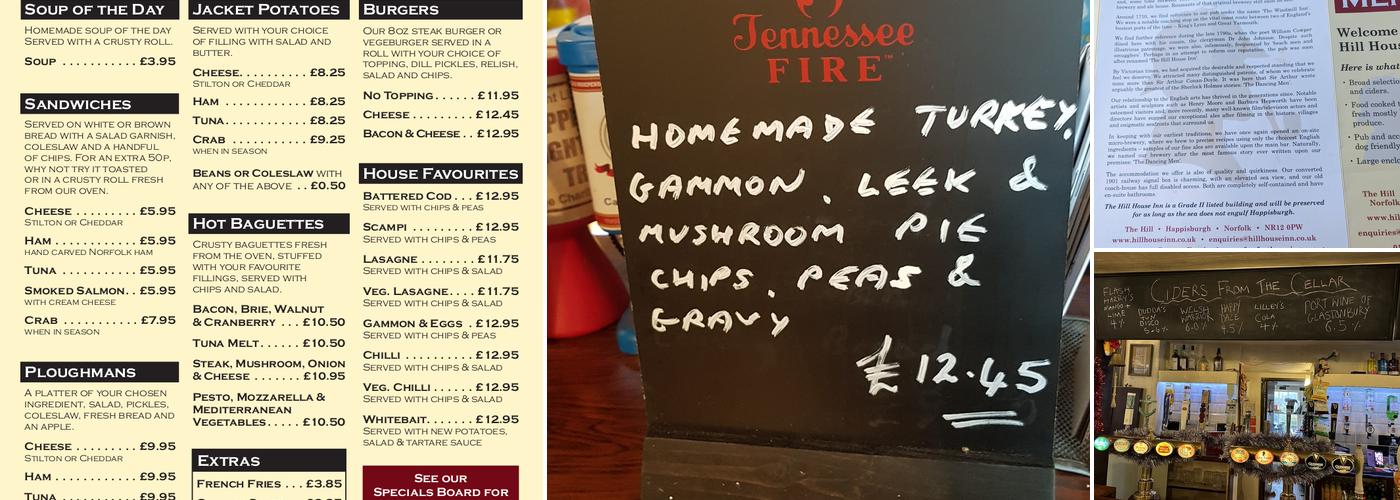 SOUP OF THE DAY
HOMEMADE SOUP OF THE DAY
SERVED WITH A CRUSTY ROLL.
SOUP . . . . . . . . . . . £3.95
SANDWICHES
SERVED ON WHITE OR BROWN
BREAD WITH A SALAD GARNISH,
COLESLAW AND A HANDFUL
OF CHIPS. FOR AN EXTRA 50P,
WHY NOT TRY IT TOASTED
OR IN A CRUSTY ROLL FRESH
FROM OUR OVEN.
CHEESE . . . . . . . . . £5.95
STILTON OR CHEDDAR
HAM . . . . . . . . . . . . £5.95
HAND CARVED NORFOLK HAM
TUNA . . . . . . . . . . . £5.95
SMOKED SALMON. . £5.95
WITH CREAM CHEESE
CRAB . . . . . . . . . . . £7.95
WHEN IN SEASON
PLOUGHMANS
A PLATTER OF YOUR CHOSEN
INGREDIENT, SALAD, PICKLES,
COLESLAW, FRESH BREAD AND
AN APPLE.
CHEESE . . . . . . . . . £9.95
STILTON OR CHEDDAR
HAM . . . . . . . . . . . . £9.95
TUNA . . . . . . . . . . . £9.95
JACKET POTATOES
SERVED WITH YOUR CHOICE
OF FILLING WITH SALAD AND
BUTTER.
CHEESE. . . . . . . . . . £8.25
STILTON OR CHEDDAR
HAM . . . . . . . . . . . . £8.25
TUNA. . . . . . . . . . . . £8.25
CRAB . . . . . . . . . . . £9.25
WHEN IN SEASON
BEANS OR COLESLAW WITH
ANY OF THE ABOVE . . £0.50
HOT BAGUETTES
CRUSTY BAGUETTES FRESH
FROM THE OVEN, STUFFED
WITH YOUR FAVOURITE
FILLINGS, SERVED WITH
CHIPS AND SALAD.
BACON, BRIE, WALNUT
& CRANBERRY . . . £10.50
TUNA MELT. . . . . . £10.50
STEAK, MUSHROOM, ONION
& CHEESE . . . . . . . £10.95
PESTO, MOZZARELLA &
MEDITERRANEAN
VEGETABLES. . . . . £10.50
EXTRAS
FRENCH FRIES . . . £3.85
BURGERS
OUR 8OZ STEAK BURGER OR
VEGEBURGER SERVED IN A
ROLL WITH YOUR CHOICE OF
TOPPING, DILL PICKLES, RELISH,
SALAD AND CHIPS.
NO TOPPING. . . . . £11.95
CHEESE . . . . . . . . £12.45
BACON & CHEESE . . £12.95
HOUSE FAVOURITES
BATTERED COD . . . £12.95
SERVED WITH CHIPS & PEAS
SCAMPI . . . . . . . . £12.95
SERVED WITH CHIPS & PEAS
LASAGNE . . . . . . . £11.75
SERVED WITH CHIPS & SALAD
VEG. LASAGNE. . . . £11.75
SERVED WITH CHIPS & SALAD
GAMMON & EGGS . £12.95
SERVED WITH CHIPS & PEAS
CHILLI . . . . . . . . . £12.95
SERVED WITH CHIPS & SALAD
VEG. CHILLI . . . . . . £12.95
SERVED WITH CHIPS & SALAD
WHITEBAIT. . . . . . . £12.95
SERVED WITH NEW POTATOES,
SALAD & TARTARE SAUCE
SEE OUR
SPECIALS BOARD FOR
Tennessee
FIRE™
HOMEMADE TURKEY,
GAMMON, LEEK &
MUSHROOM PIE
CHIPS, PEAS &
GRAVY
£12.45
The accommodation we offer is also of quality and quirkiness. Our converted
1901 railway signal box is charming, with an elevated sea view, and our old
coach-house has full disabled access. Both are completely self-contained and have
en-suite bathrooms.
The Hill House Inn is a Grade II listed building and will be preserved
for as long as the sea does not engulf Happisburgh.
The Hill • Happisburgh • Norfolk • NR12 0PW
www.hillhouseinn.co.uk • enquiries@hillhouseinn.co.uk
Welcome
Hill Hou
Here is what
• Broad selectio
and ciders.
• Food cooked
fresh mostly
produce.
• Pub and acc
dog friendly
• Large enclo
The Hill
Norfolk
www.hil
enquiries@
CIDERS FROM THE CELLAR
FLASH
HARRY'S
MANGO +
LIME
4%
DUDDA'S
TUN
DISCO
WELSH
WARRIOR
6.0%
HAPPY
DAZE
4.5%
LILLEY'S
COLA
4%
PORT WINE OF
GLASTONBURY
6.5%